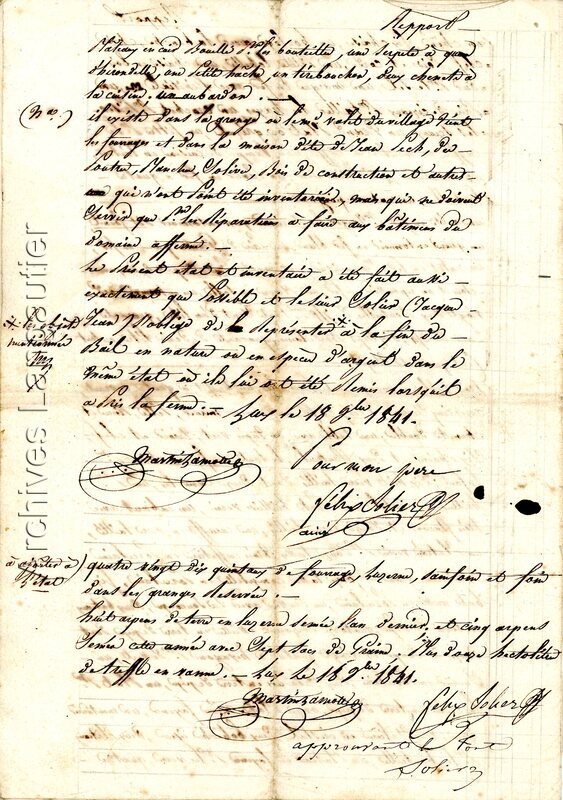 Report
Plateaux en cuir Bouille Pr les bouteilles, une serpete à queue
d'hirondelle, une petite hache, un tirebouchon, deux chenets à
la cuisine, un aubardon. —
(Nta.)
il existe dans la grange ou le me valet du village tient
les fourages et dans la maison d'été de Jean Pech, des
Poutres, Planches, Solives, Bois de construction et autres
qui n'ont point été inventoriés, mais qui ne doivent
servir que Pr les Réparations à faire aux bâtimens du
domaine affermé. —
Le Présent état et inventaire a été fait aussi
exactement que Possible et le sieur Solier (Jacques
Jean) s'oblige de le Représenter à la fin du
+ les objets
mentionnés
Bail en nature ou en espèces d'argent dans le
même état où ils lui ont été Remis lorsqu'il
a Pris la ferme. — Lux le 18 9bre 1841.
Martin Lamotte
Pour mon pere
félix Solier
ainé
à ajouter à
l'état
quatre vingt dix quintaux de fourrage, Luzerne, sainfoin et foin
dans les granges Reservées.
huit arpens de terre en luzerne semée l'an dernier, et cinq arpens
Semée cette année avec Sept Sacs de Graine. Plus douze hectolitres
de treffle en vanne. — Lux Le 18 9bre 1841.
Martin Lamotte
félix Solier
approuvant le tout
Solier
Archives Lamssutier